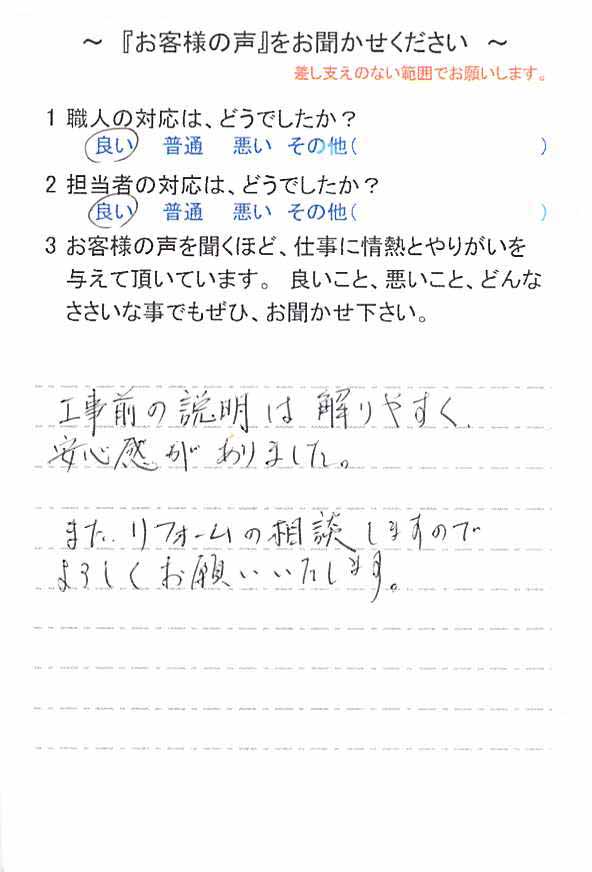 ～ 『お客様の声』をお聞かせください ～
差し支えのない範囲でお願いします。
1 職人の対応は、どうでしたか？
良い 普通 悪い その他( )
2 担当者の対応は、どうでしたか？
良い 普通 悪い その他( )
3 お客様の声を聞くほど、仕事に情熱とやりがいを
与えて頂いています。 良いこと、悪いこと、どんな
ささいな事でもぜひ、お聞かせ下さい。
工事前の説明は解りやすく、
安心感がありました。
また、リフォームの相談しますので
よろしくお願いいたします。